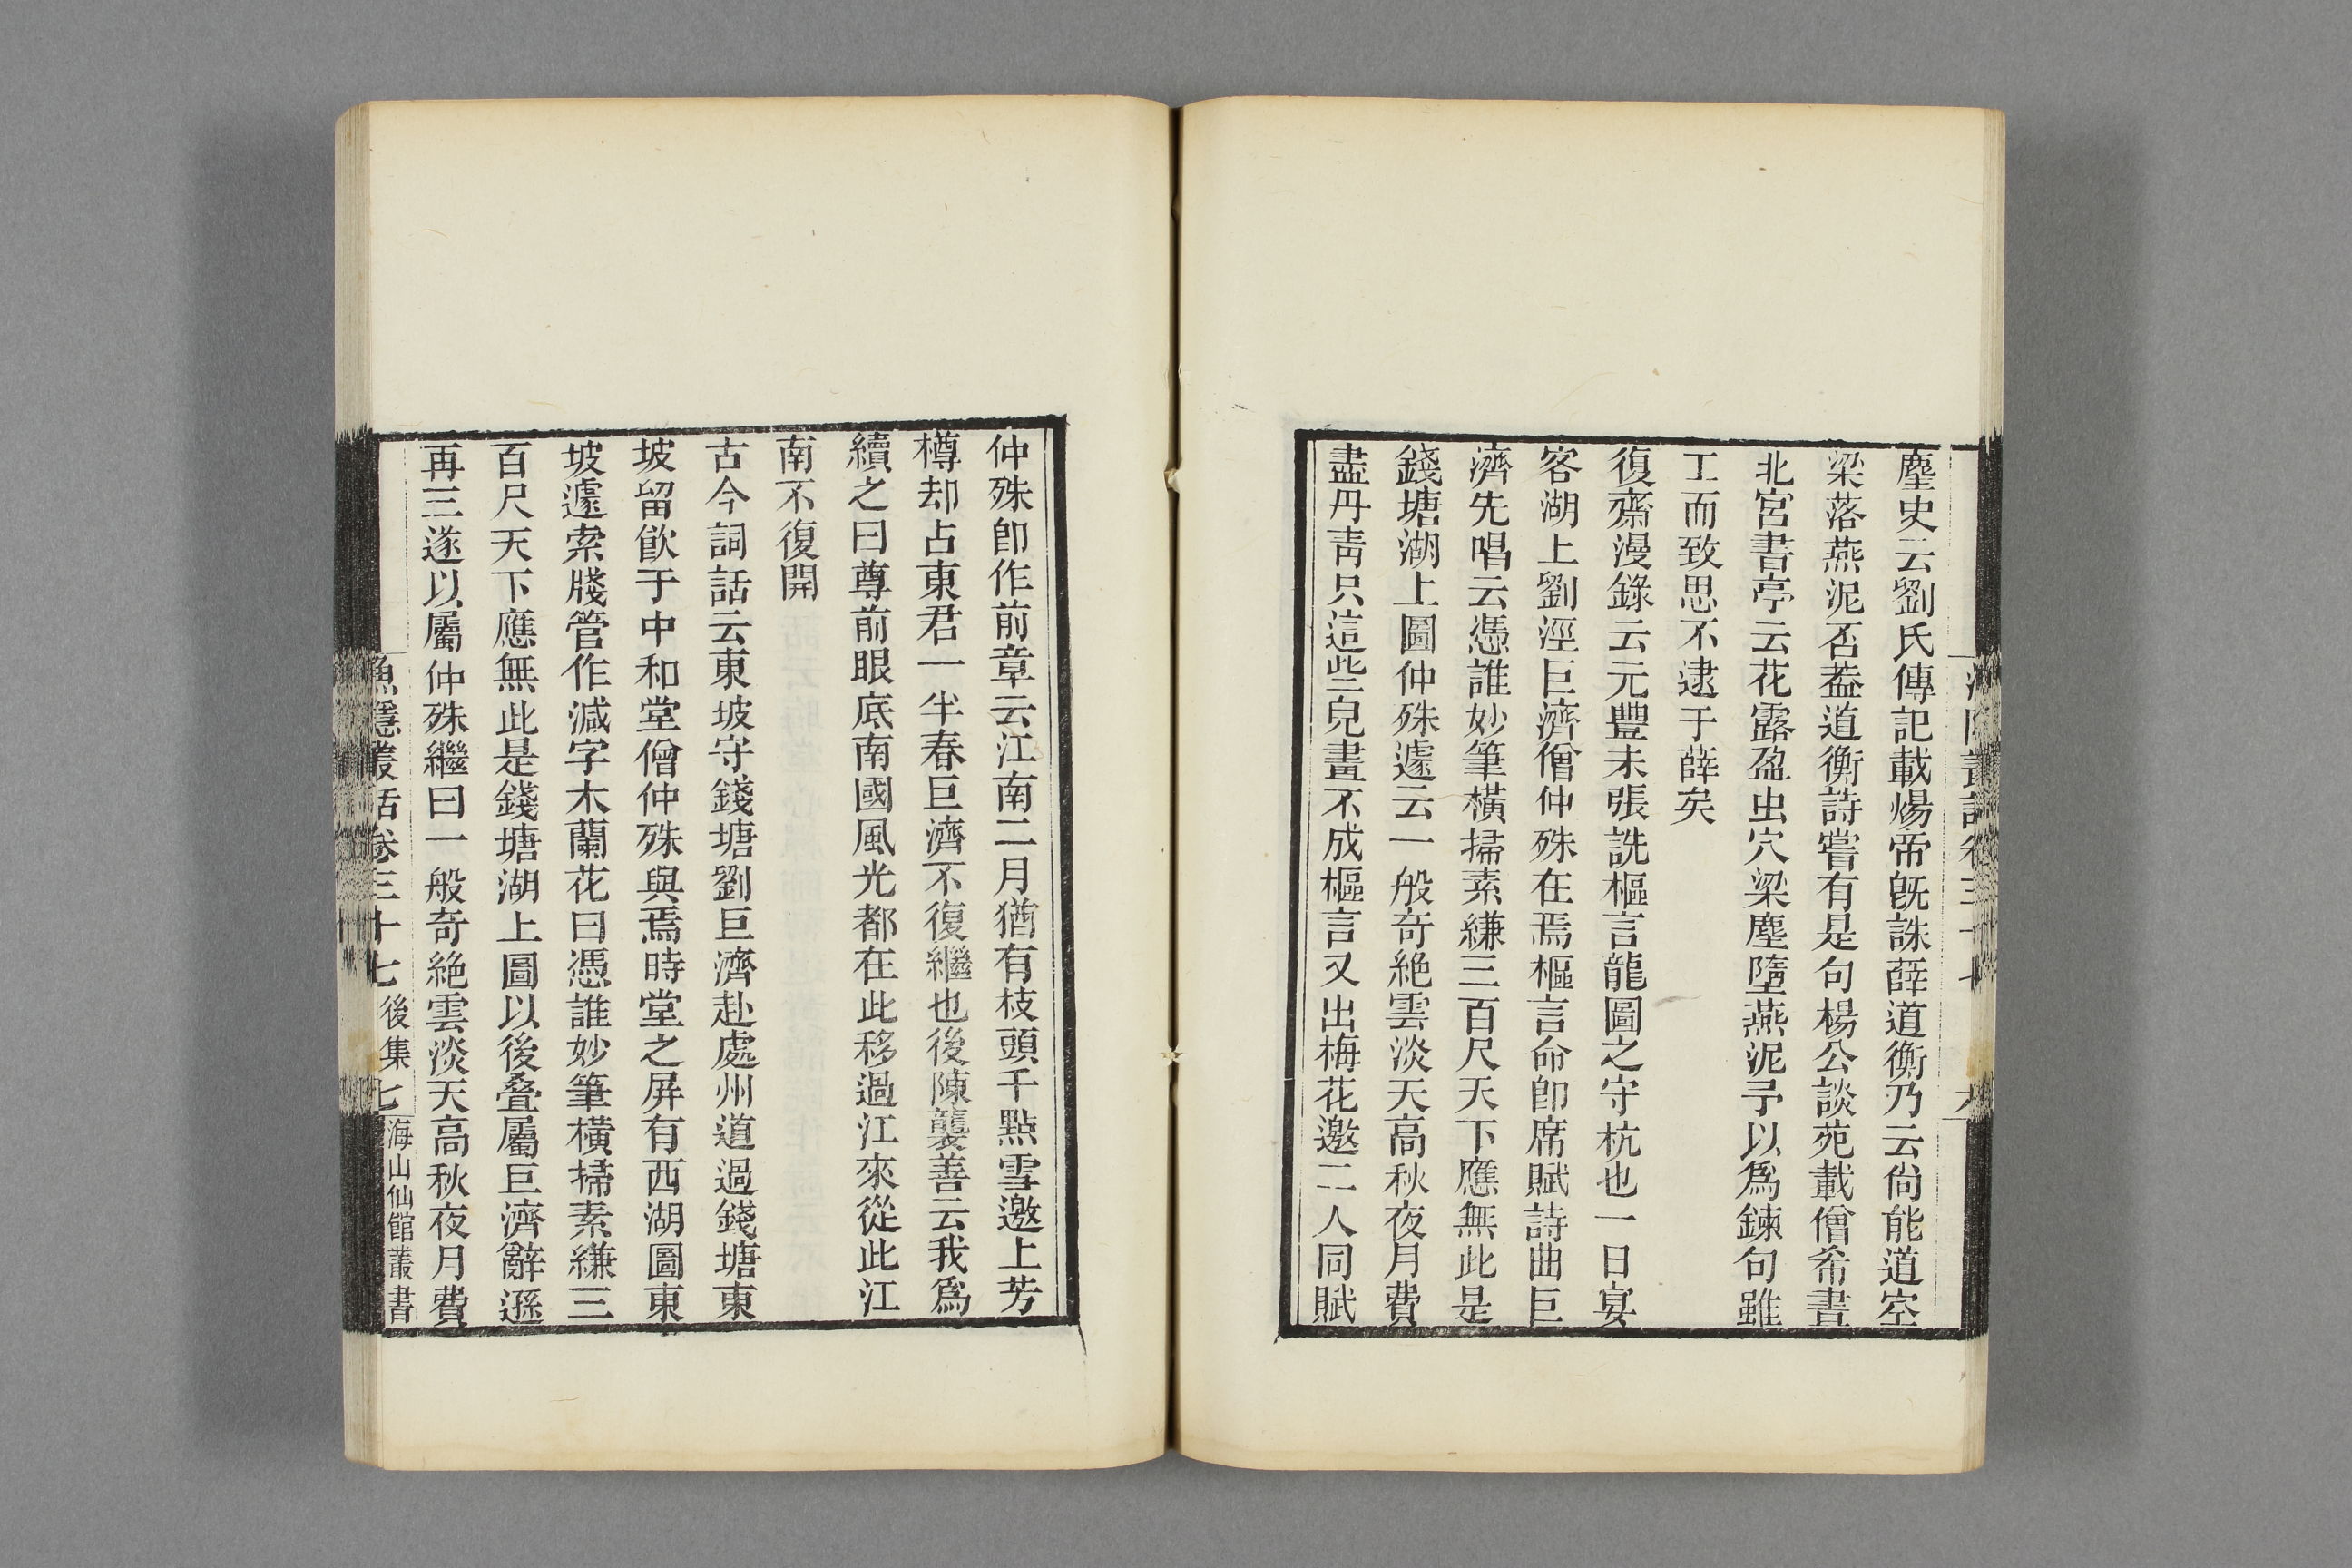 麈史云劉氏傳記載煬帝旣誅薛道衡乃云尙能道空
梁落燕泥否葢道衡詩嘗有是句楊公談苑載僧希晝
北宮書亭云花露盈虫穴梁塵墮燕泥予以爲鍊句雖
工而致思不逮于薛矣
復齋漫錄云元豐末張詵樞言龍圖之守杭也一日宴
客湖上劉涇巨濟僧仲殊在焉樞言命卽席賦詩曲巨
濟先唱云憑誰妙筆橫掃素縑三百尺天下應無此是
錢塘湖上圖仲殊遽云一般奇絶雲淡天高秋夜月費
盡丹靑只這些兒畫不成樞言又出梅花邀二人同賦
仲殊卽作前章云江南二月猶有枝頭千點雪邀上芳
樽却占東君一半春巨濟不復繼也後陳襲善云我爲
續之曰尊前眼底南國風光都在此移過江來從此江
南不復開
古今詞話云東坡守錢塘劉巨濟赴處州道過錢塘東
坡留飮于中和堂僧仲殊與焉時堂之屏有西湖圖東
坡遽索牋管作減字木蘭花曰憑誰妙筆橫掃素縑三
百尺天下應無此是錢塘湖上圖以後叠屬巨濟辭遜
再三遂以屬仲殊繼曰一般奇絶雲淡天高秋夜月費
漁隱叢話卷三十七 後集 七 海山仙館叢書